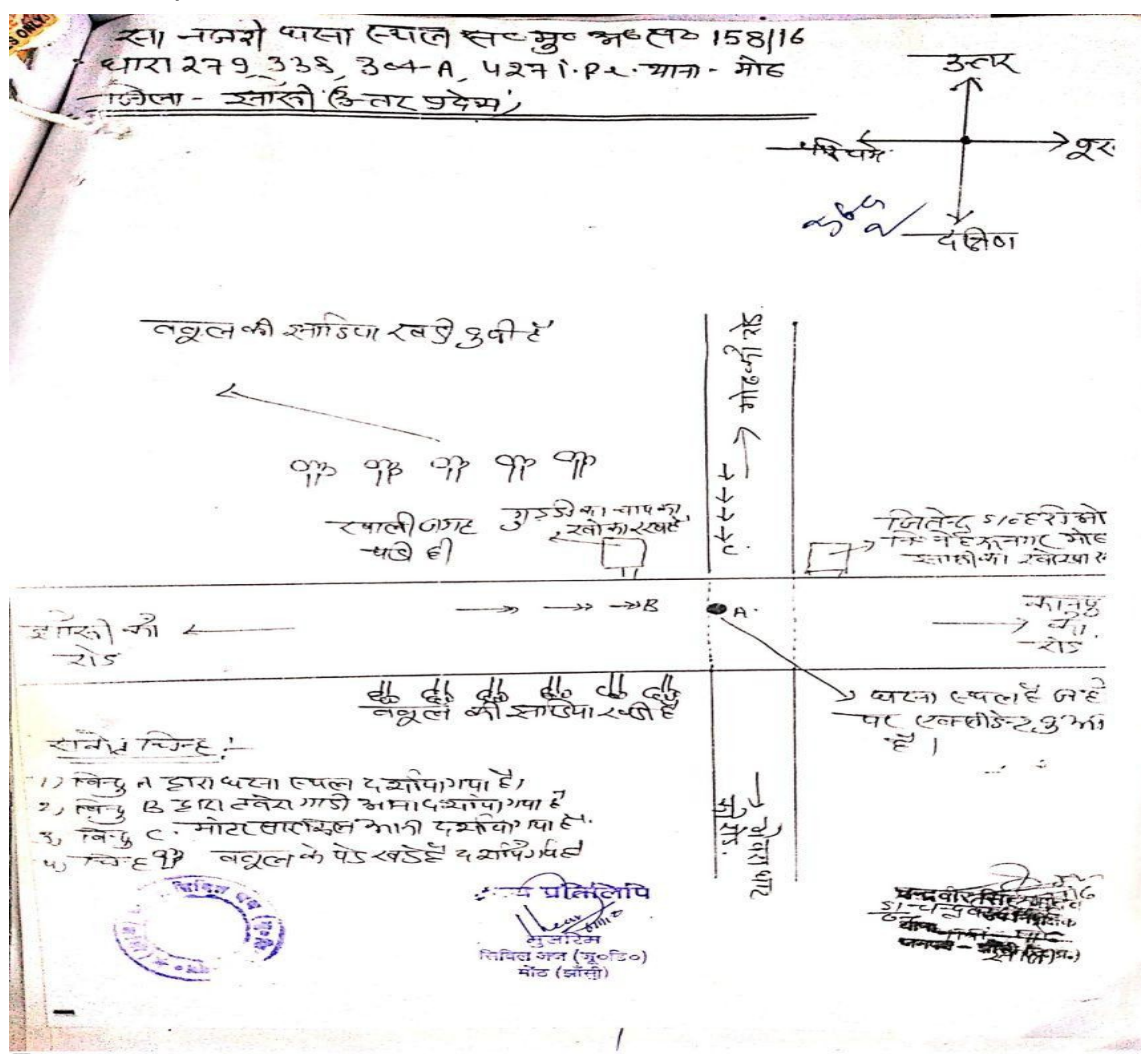 नजरी घटना स्थल मु० अ० सं० 158/16
धारा 279, 338, 304-A, 427 i.P.c. थाना - मोठ
जिला - झाँसी (उत्तर प्रदेश)
उत्तर
पश्चिम
पूरब
दक्षिण
बबूल की झाडिया खडी हुयी है
मोठ की रोड
खाली जगह
पडी है
गुड्डी का चाय का
खोका रखा है
C.
जितेन्द्र S/o हरीओम
नि० मोठ
झाँसी का
झाँसी को
रोड
B
A.
कानपुर
को
रोड
बबूल की झाडिया खडी है
घटना स्थल है जहाँ
पर एक्सीडेन्ट हुआ
है।
संकेत चिन्ह :-
1) बिन्दु A द्वारा घटना स्थल दर्शाया गया है,
2) बिन्दु B द्वारा टवेरा गाडी आना दर्शाया गया है
3) बिन्दु C. मोटर साईकिल आनी दर्शाया गया है.
4) चिन्ह बबूल के पेड खडे है दर्शाये गये है
को रोड.
सत्य प्रतिलिपि
मुंसरिम
सिविल जज (जू०डि०)
मोंठ (झाँसी)
चन्द्रवीर सिंह
उप निरीक्षक
थाना
जनपद - झाँसी (उ.प्र.)
1